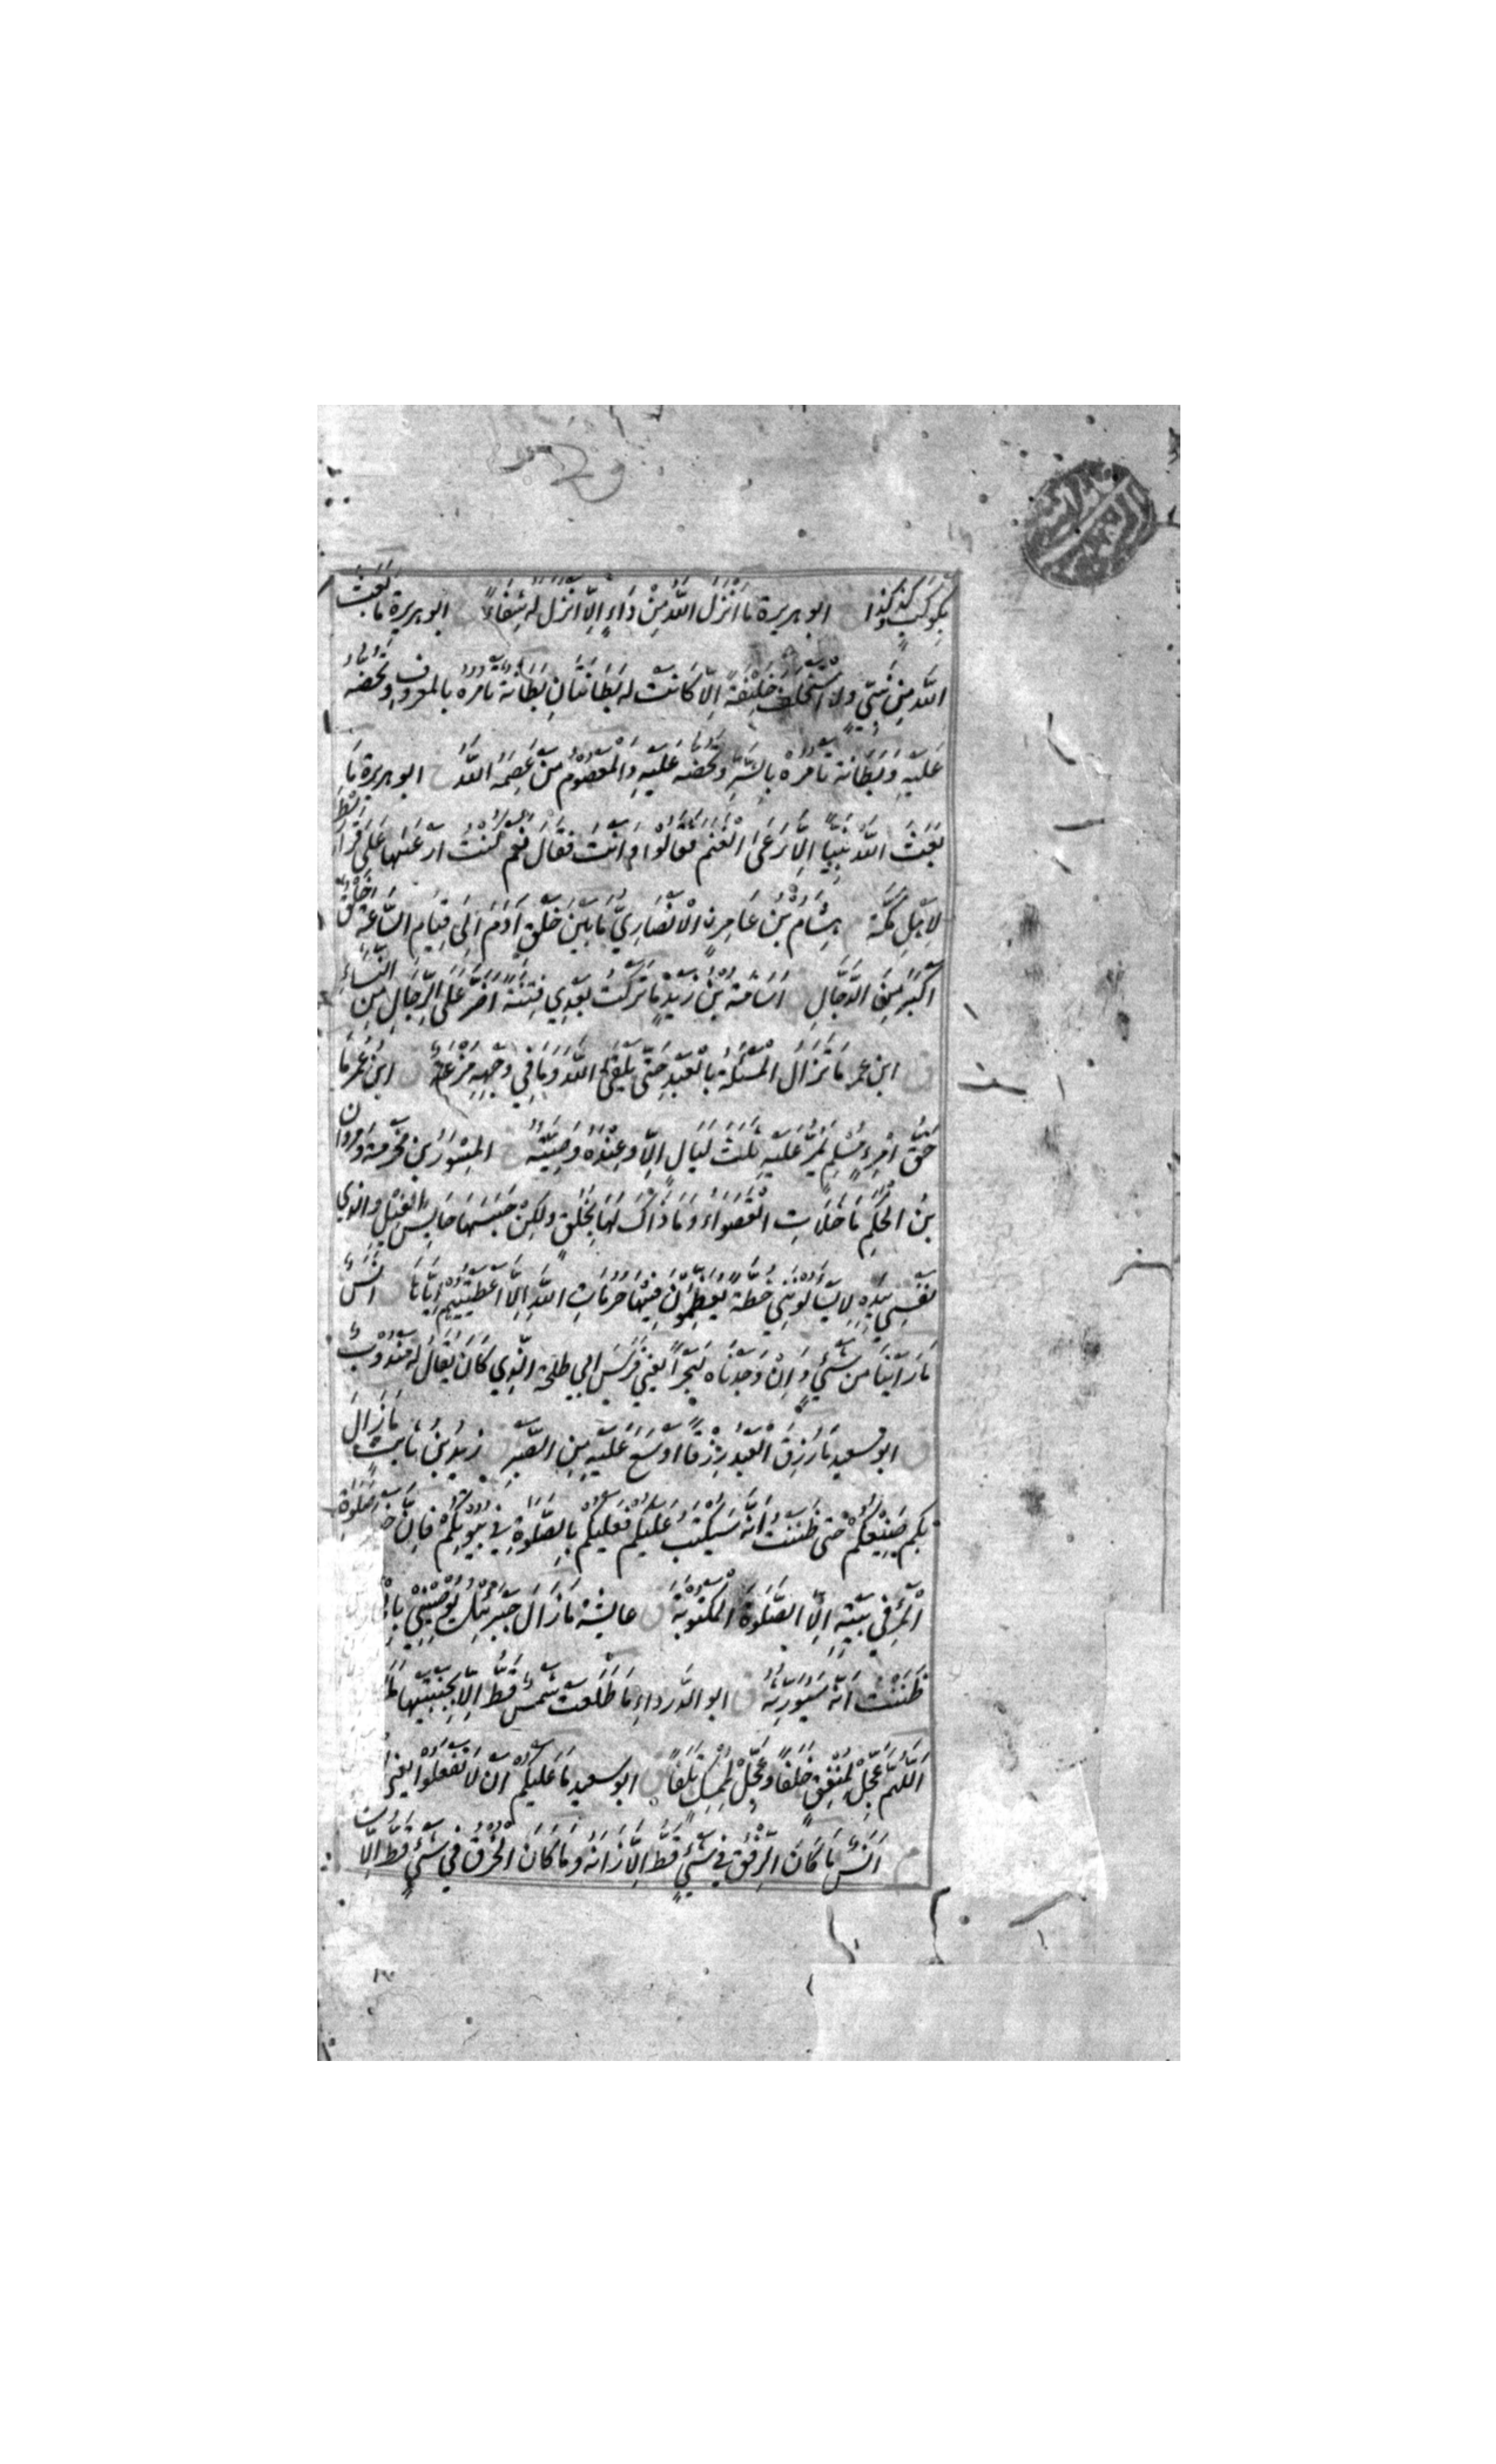 بِكَوْكَبِ كَذَا وَكَذَا خ ابو هريرة مَا اَنْزَلَ اللّٰهُ مِنْ دَاءٍ اِلَّا اَنْزَلَ لَهُ شِفَاءً خ ابو هريرة مَا بَعَثَ
اللّٰهُ مِنْ نَبِيٍّ وَلَا اسْتَخْلَفَ خَلِيْفَةً اِلَّا كَانَتْ لَهُ بِطَانَتَانِ بِطَانَةٌ تَامُرُهُ بِالْمَعْرُوْفِ وَتَحُضُّهُ
عَلَيْهِ وَبِطَانَةٌ تَامُرُهُ بِالشَّرِّ وَتَحُضُّهُ عَلَيْهِ وَالْمَعْصُوْمُ مَنْ عَصَمَهُ اللّٰهُ خ ابو هريرة مَا
بَعَثَ اللّٰهُ نَبِيًّا اِلَّا رَعَى الْغَنَمَ فَقَالُوْا وَاَنْتَ فَقَالَ نَعَمْ كُنْتُ اَرْعٰيهَا عَلٰى قَرَارِيْطَ
لِاَهْلِ مَكَّةَ هِشَامُ بْنُ عَامِرِنِ الْاَنْصَارِيُّ مَا بَيْنَ خَلْقِ اٰدَمَ اِلٰى قِيَامِ السَّاعَةِ خَلْقٌ
اَكْبَرُ مِنَ الدَّجَّالِ ق اُسَامَةُ بْنُ زَيْدٍ مَا تَرَكْتُ بَعْدِي فِتْنَةً اَضَرَّ عَلَى الرِّجَالِ مِنَ النِّسَاءِ
ق ابن عمر مَا تَزَالُ الْمَسْئَلَةُ بِالْعَبْدِ حَتّٰى يَلْقَى اللّٰهَ وَمَا فِي وَجْهِهِ مُزْعَةٌ ق ابْنُ عُمَرَ مَا
حَقُّ امْرِءٍ مُسْلِمٍ تَمُرُّ عَلَيْهِ ثَلٰثُ لَيَالٍ اِلَّا وَعِنْدَهُ وَصِيَّتُهُ خ الْمِسْوَرُ بْنُ مَخْرَمَةَ وَمَرْوَانُ
بْنُ الْحَكَمِ مَا خَلَاَتِ الْقَصْوَاءُ وَمَا ذَاكَ لَهَا بِخُلُقٍ وَلٰكِنْ حَبَسَهَا حَابِسُ الْفِيْلِ وَالَّذِي
نَفْسِي بِيَدِهِ لَا يَسْاَلُوْنَنِي خُطَّةً يُعَظِّمُوْنَ فِيْهَا حُرُمَاتِ اللّٰهِ اِلَّا اَعْطَيْتُهُمْ اِيَّاهَا ق اَنَسٌ
مَا رَاَيْنَا مِنْ شَيْءٍ وَاِنْ وَجَدْنَاهُ لَبَحْرًا يَعْنِي فَرَسَ ابي طلحة الَّذِي كَانَ يُقَالُ لَهُ مَنْدُوْبٌ
ق ابو سعيد مَا رُزِقَ الْعَبْدُ رِزْقًا اَوْسَعَ عَلَيْهِ مِنَ الصَّبْرِ ق زَيْدُ بْنُ ثَابِتٍ مَا زَالَ
بِكُمْ صَنِيْعُكُمْ حَتّٰى ظَنَنْتُ اَنَّهُ سَيُكْتَبُ عَلَيْكُمْ فَعَلَيْكُمْ بِالصَّلٰوةِ فِي بُيُوْتِكُمْ فَاِنَّ خَيْرَ صَلٰوةِ
الْمَرْءِ فِي بَيْتِهِ اِلَّا الصَّلٰوةَ الْمَكْتُوْبَةَ ق عايشة مَا زَالَ جِبْرَئِيْلُ يُوْصِيْنِي
ظَنَنْتُ اَنَّهُ سَيُوَرِّثُهُ ق ابو الدرداء مَا طَلَعَتْ شَمْسٌ قَطُّ اِلَّا بِجَنْبَتَيْهَا
اَللّٰهُمَّ عَجِّلْ لِمُنْفِقٍ خَلَفًا وَعَجِّلْ لِمُمْسِكٍ تَلَفًا ق ابو سعيد مَا عَلَيْكُمْ اَنْ لَا تَفْعَلُوْا
م اَنَسٌ مَا كَانَ الرِّفْقُ فِي شَيْءٍ قَطُّ اِلَّا زَانَهُ وَمَا كَانَ الْخُرْقُ فِي شَيْءٍ قَطُّ اِلَّا